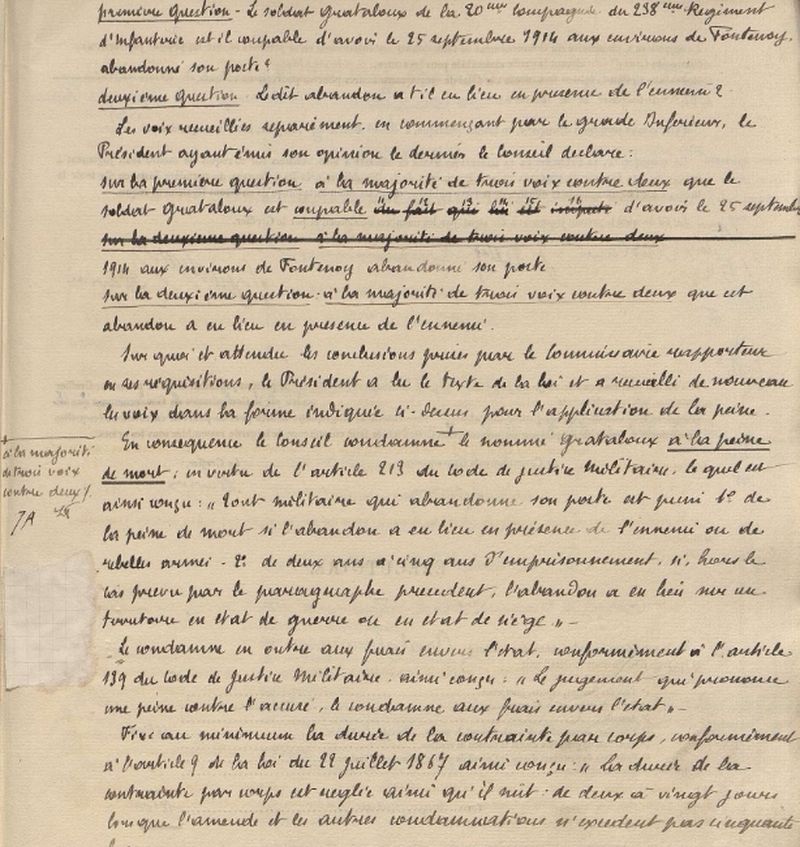 première question - Le soldat Grataloux de la 20ème Compagnie du 238ème Régiment
d'Infanterie est il coupable d'avoir le 25 septembre 1914 aux environs de Fontenoy,
abandonné son poste ?
deuxième question. Le dit abandon a t'il eu lieu en présence de l'ennemi ?
Les voix recueillies séparément, en commençant par le grade Inférieur, le
Président ayant émis son opinion le dernier le Conseil déclare :
sur la première question, à la majorité de trois voix contre deux que le
soldat Grataloux est coupable du fait qui lui est d'avoir le 25 septembre
sur la deuxième question à la majorité de trois voix contre deux
1914 aux environs de Fontenoy abandonné son poste
sur la deuxième question. à la majorité de trois voix contre deux que cet
abandon a eu lieu en présence de l'ennemi.
Sur quoi et attendu les conclusions prises par le Commissaire rapporteur
en ses réquisitions, le Président a lu le texte de la loi et a recueilli de nouveau
les voix dans la forme indiquée ci-dessus pour l'application de la peine.
En conséquence le Conseil condamne + le nommé Grataloux à la peine
de mort, en vertu de l'article 213 du code de justice Militaire, le quel est
ainsi conçu : „ Tout militaire qui abandonne son poste est puni 1° de
la peine de mort si l'abandon a eu lieu en présence de l'ennemi ou de
rebelles armés - 2° de deux ans à cinq ans d'emprisonnement, si, hors le
cas prévu par le paragraphe précédent, l'abandon a eu lieu sur un
territoire en état de guerre ou en état de siège „ -
Le condamne en outre aux frais envers l'état, conformément à l'article
139 du code de Justice Militaire. ainsi conçu : „ Le jugement qui prononce
une peine contre l'accusé, le condamne aux frais envers l'état „ -
Fixe au minimum la durée de la contrainte par corps, conformément
à l'article 9 de la loi du 22 juillet 1867 ainsi conçu : „ La durée de la
contrainte par corps est réglée ainsi qu'il suit : de deux à vingt jours
lorsque l'amende et les autres condamnations n'excèdent pas cinquante
+
à la majorité
de trois voix
contre deux /.